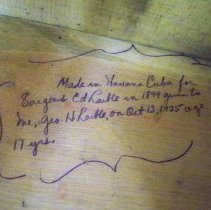 Made in Havana Cuba for
Sargeant Ed Laible in 1899 given to
me, Geo. H Laible, on Oct 13, 1925 age
17 yrs.